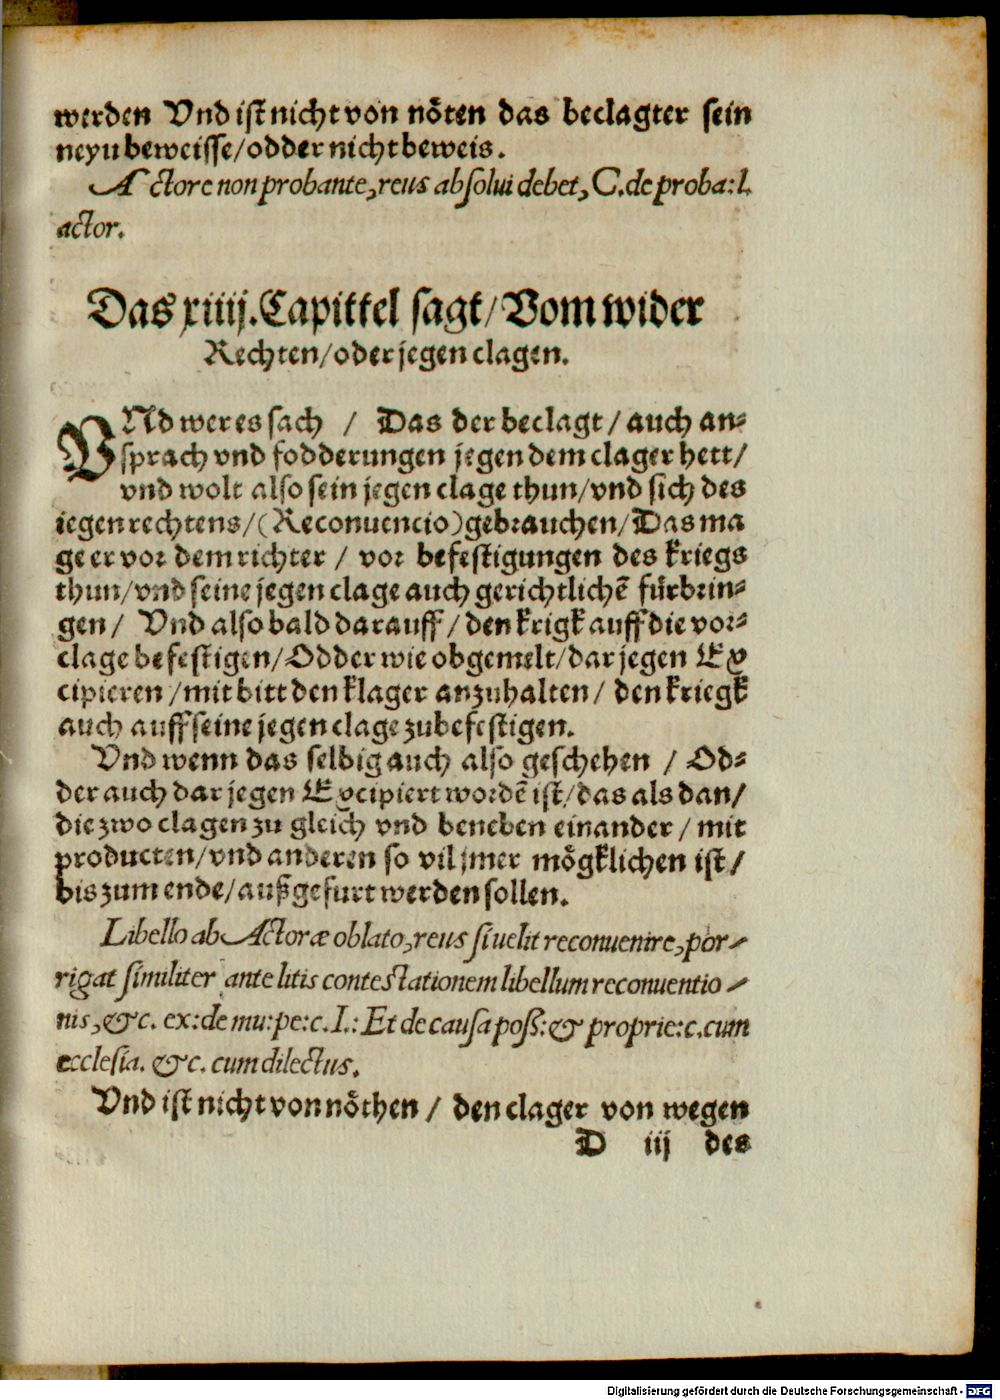 werden Vnd ist nicht von nöten das beclagter sein
neyn beweisse/odder nicht beweis.
Actore non probante, reus absolui debet, C. de proba: l.
actor.
Das xiiij. Capittel sagt/Vom wider
Rechten/oder jegen clagen.
VNd wer es sach / Das der beclagt/auch an-
sprach vnd fodderungen jegen dem clager hett/
vnd wolt also sein jegen clage thun/vnd sich des
iegen rechtens/(Reconuencio)gebrauchen/Das ma
ge er vor dem richter / vor befestigungen des kriegs
thun/vnd seine jegen clage auch gerichtlichē fürbrin-
gen / Vnd also bald darauff/den krigk auff die vor-
clage befestigen/Odder wie obgemelt/dar jegen Ex
cipieren/mit bitt den klager anzuhalten/ den kriegk
auch auff seine jegen clage zubefestigen.
Vnd wenn das selbig auch also geschehen / Od-
der auch dar jegen Excipiert wordē ist/das als dan/
die zwo clagen zu gleich vnd beneben einander/mit
producten/vnd anderen so vil jmer mögklichen ist/
bis zum ende/außgefurt werden sollen.
Libello ab Actoræ oblato, reus si uelit reconuenire, por-
rigat similiter ante litis contestationem libellum reconuentio-
nis, &c. ex: de mu: pe: c. I.: Et de causa poß: & proprie: c. cum
ecclesia. &c. cum dilectus.
Vnd ist nicht von nöthen / den clager von wegen
D iij des
Digitalisierung gefördert durch die Deutsche Forschungsgemeinschaft - DFG